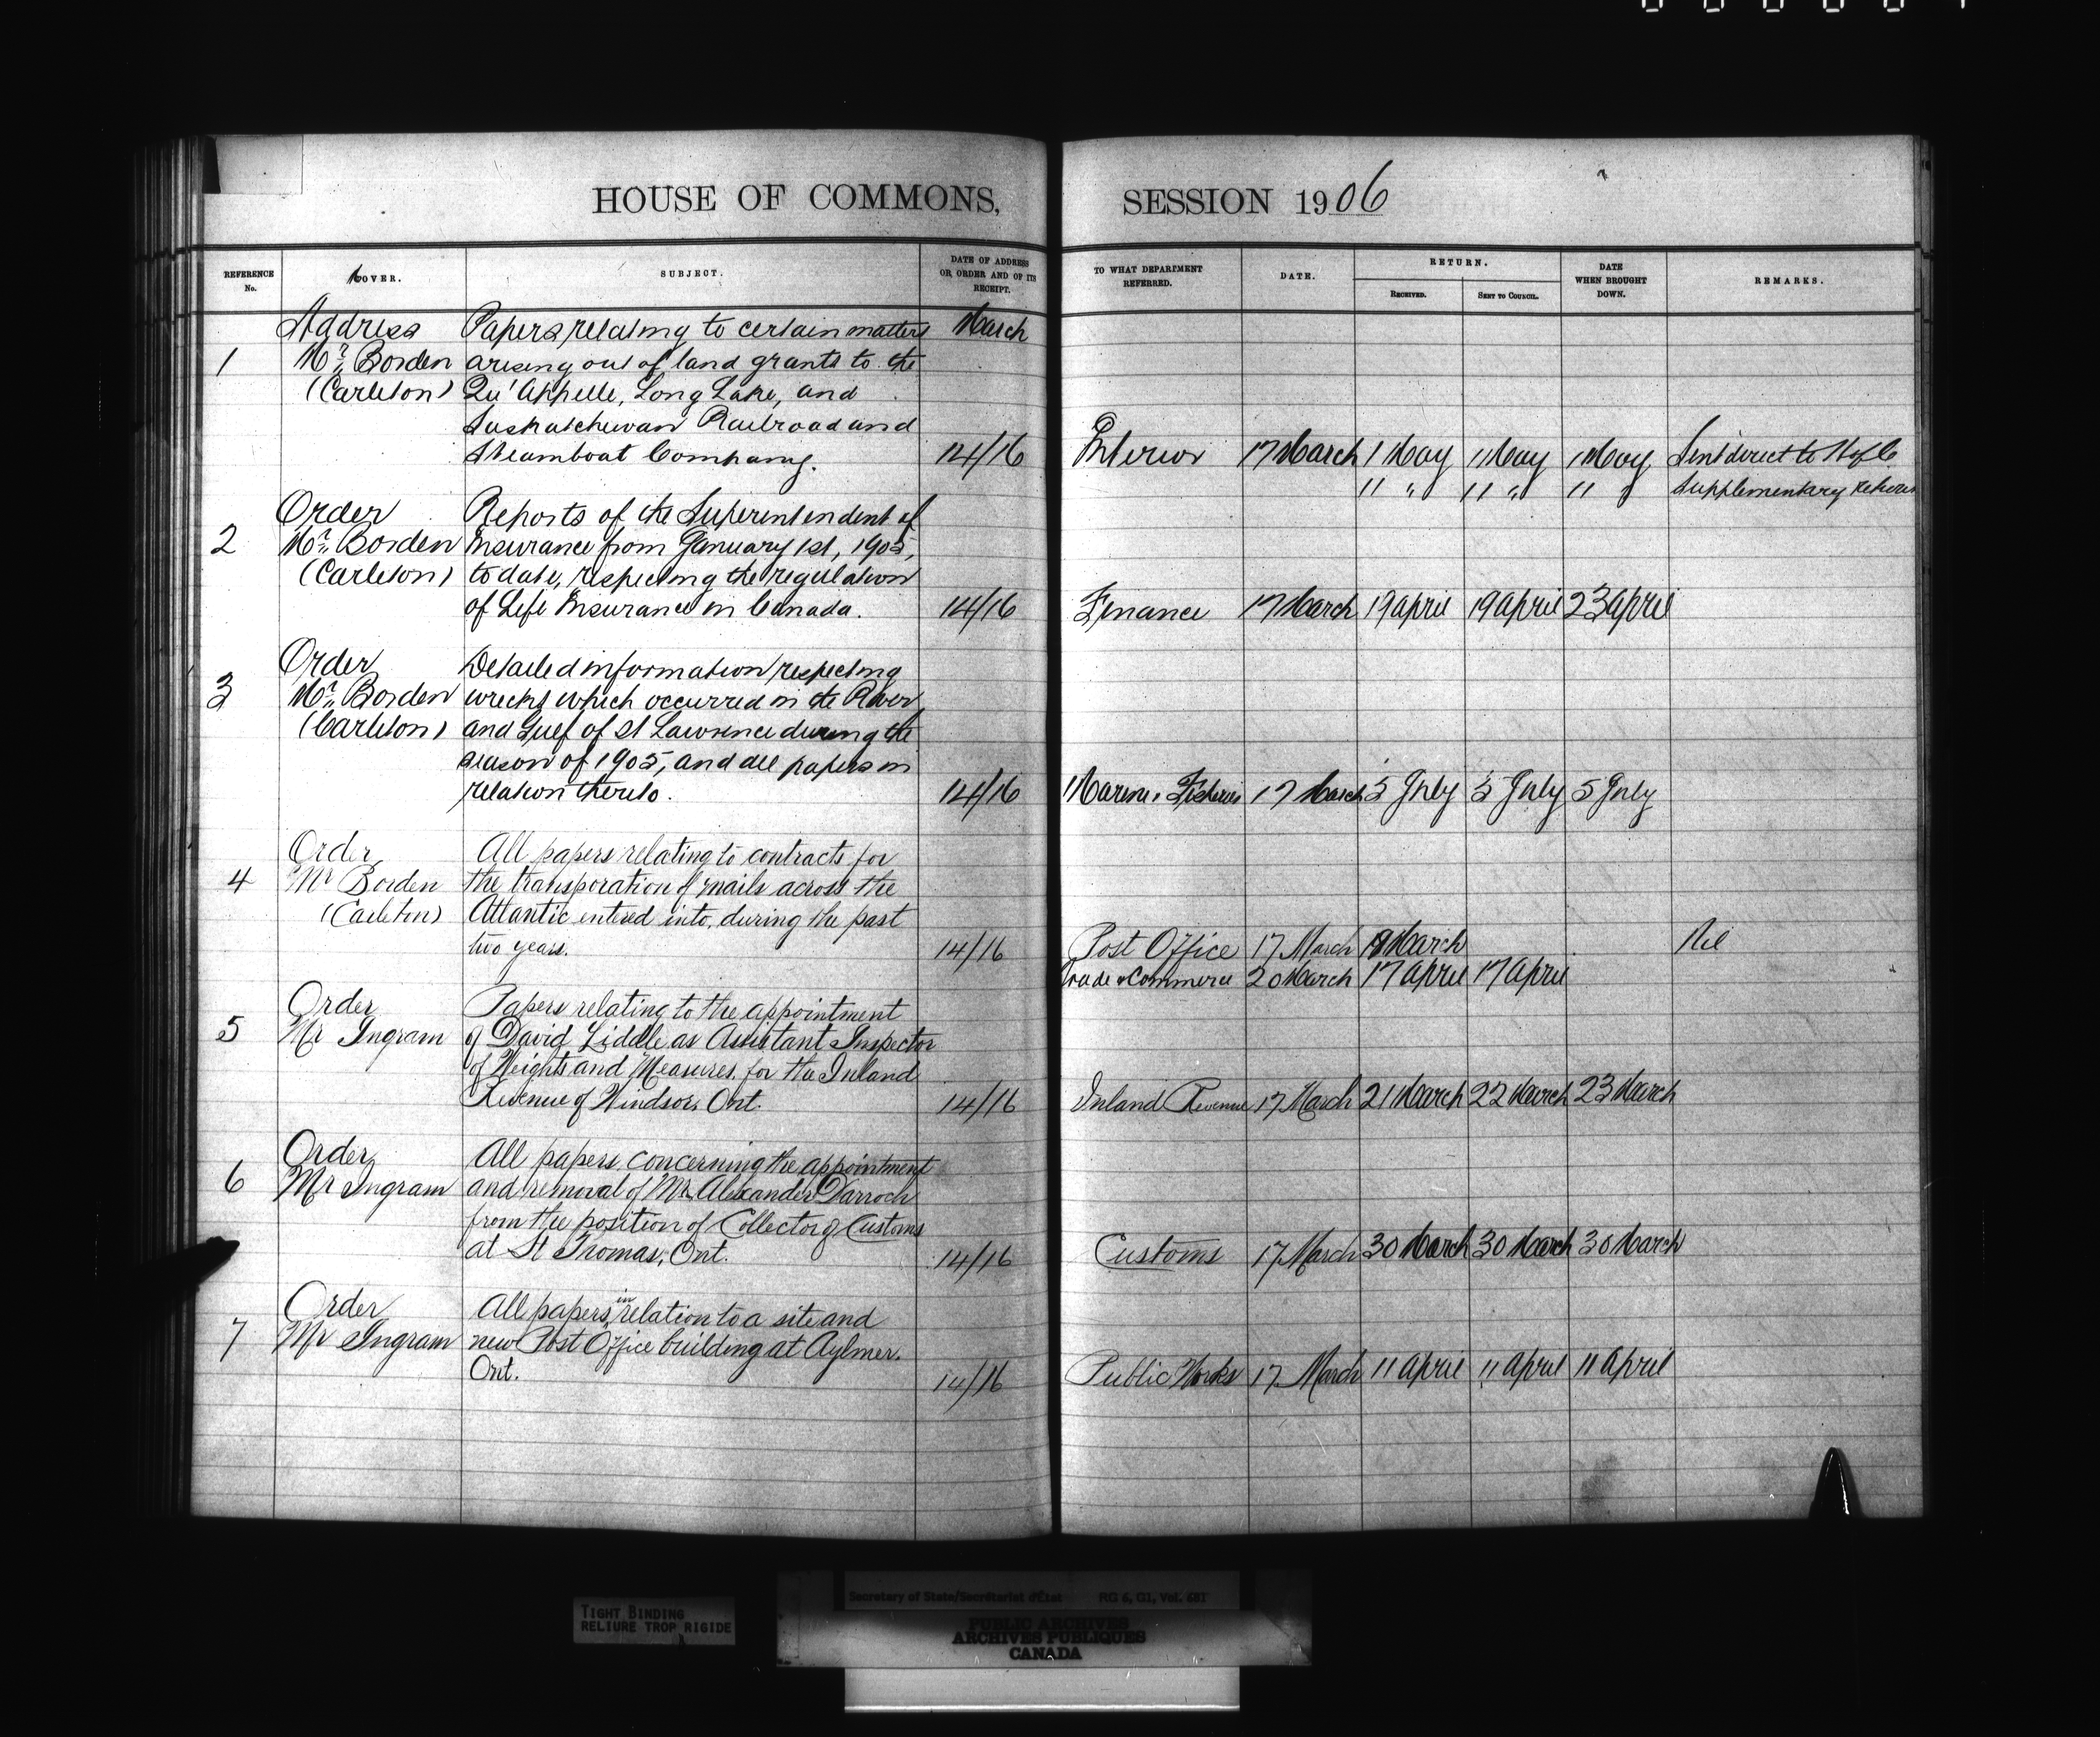 HOUSE OF COMMONS,
REFERENCE No.
MOVER.
SUBJECT.
DATE OF ADDRESS OR ORDER AND OF ITS RECEIPT.
Address Papers relating to certain matters March
1 Mr. Borden arising out of land grants to the
(Carleton) Qu'Appelle, Long Lake, and
Saskatchewan Railroad and
Steamboat Company. 14/16
Order Reports of the Superintendent of
2 Mr. Borden Insurance from January 1st, 1905,
(Carleton) to date, respecting the regulation
of Life Insurance in Canada. 14/16
Order Detailed information respecting
3 Mr. Borden wrecks which occurred in the River
(Carleton) and Gulf of St Lawrence during the
season of 1905, and all papers in
relation thereto. 14/16
Order All papers relating to contracts for
4 Mr Borden the transporation of mails across the
(Carleton) Atlantic entered into, during the past
two years. 14/16
Order Papers relating to the appointment
5 Mr Ingram of David Liddle as Assistant Inspector
of Weights and Measures for the Inland
Revenue of Windsor, Ont. 14/16
Order All papers concerning the appointment
6 Mr Ingram and removal of Mr. Alexander Darroch
from the position of Collector of Customs
at St Thomas, Ont. 14/16
Order All papers in relation to a site and
7 Mr Ingram new Post Office building at Aylmer.
Ont. 14/16
SESSION 1906
TO WHAT DEPARTMENT REFERRED.
DATE.
RETURN.
RECEIVED.
SENT TO COUNCIL.
DATE WHEN BROUGHT DOWN.
REMARKS.
Interior 17 March 1 May 1 May 1 May Sent direct to H of C
11 " 11 " 11 " Supplementary Return
Finance 17 March 19 April 19 April 23 April
Marine & Fisheries 17 March 5 July 5 July 5 July
Post Office 17 March 19 March Nil
Trade & Commerce 20 March 17 April 17 April
Inland Revenue 17 March 21 March 22 March 23 March
Customs 17 March 30 March 30 March 30 March
Public Works 17 March 11 April 11 April 11 April
TIGHT BINDING
RELIURE TROP RIGIDE
Secretary of State/Secrétariat d'État RG 6, G1, Vol. 681
PUBLIC ARCHIVES
ARCHIVES PUBLIQUES
CANADA